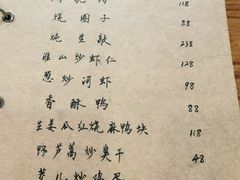 118
烧圈子 88
炖生敲 238
淮山炒虾仁 128
葱炒河虾 98
香酥鸭 88
生姜瓜红烧麻鸭块 118
野芦蒿炒臭干 48